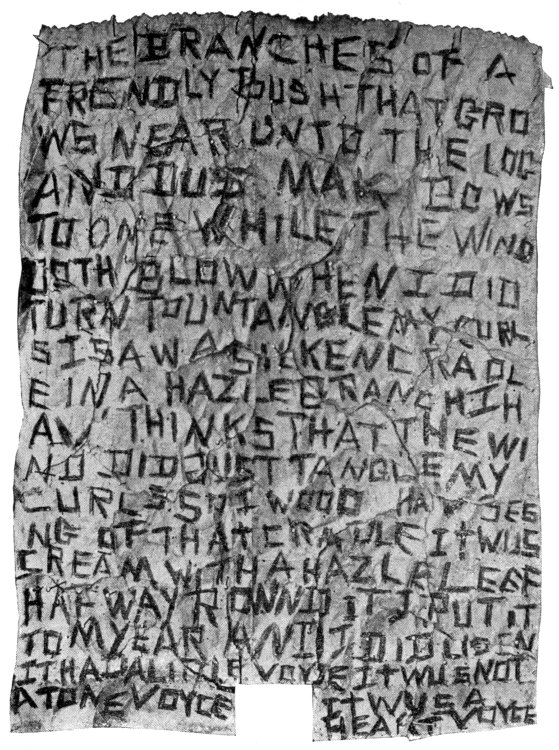 THE BRANCHES OF A
FRENDLY BUSH THAT GRO
WS NEAR UNTO THE LOG
AND DUS MAK BOWS
TO ONE WHILE THE WIND
DOTH BLOW WHEN I DID
TURN TO UNTANGLE MY CURL
S I SAW A SILKEN CRADL
E IN A HAZLE BRANCH I H
AV THINKS THAT THE WI
ND DID JUST TANGLE MY
CURLS SO I WOOD HAV SEE
NG OF THAT CRADLE IT WUS
CREAM WITH A HAZLE LEEF
HAF WAY ROWND IT I PUT IT
TO MY EAR AND I DID LISEN
IT HAD A LITLE VOYCE IT WUS NOT
A TONE VOYCE IT WUS A
HEART VOYCE